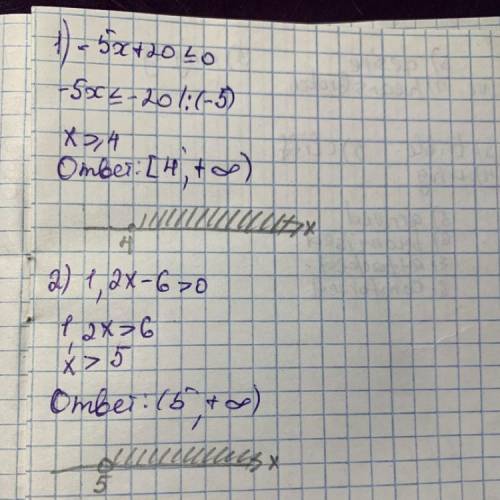 1) -5x+20≤0
-5x≤-20 |:(-5)
x≥4
Ответ: [4, +∞)
4 x
2) 1,2x-6>0
1,2x>6
x>5
Ответ: (5, +∞)
5 x